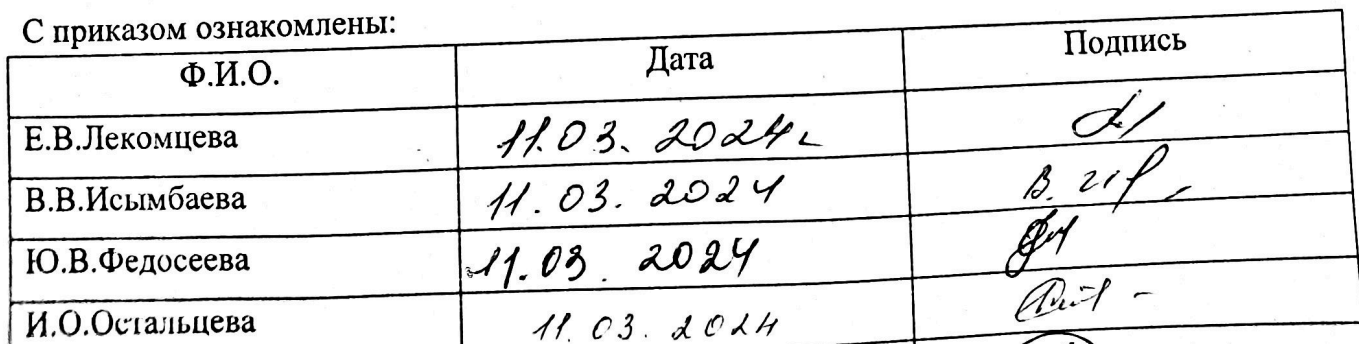 С приказом ознакомлены:
Ф.И.О. Дата Подпись
Е.В.Лекомцева 11.03.2024г
В.В.Исымбаева 11.03.2024
Ю.В.Федосеева 11.03.2024
И.О.Остальцева 11.03.2024